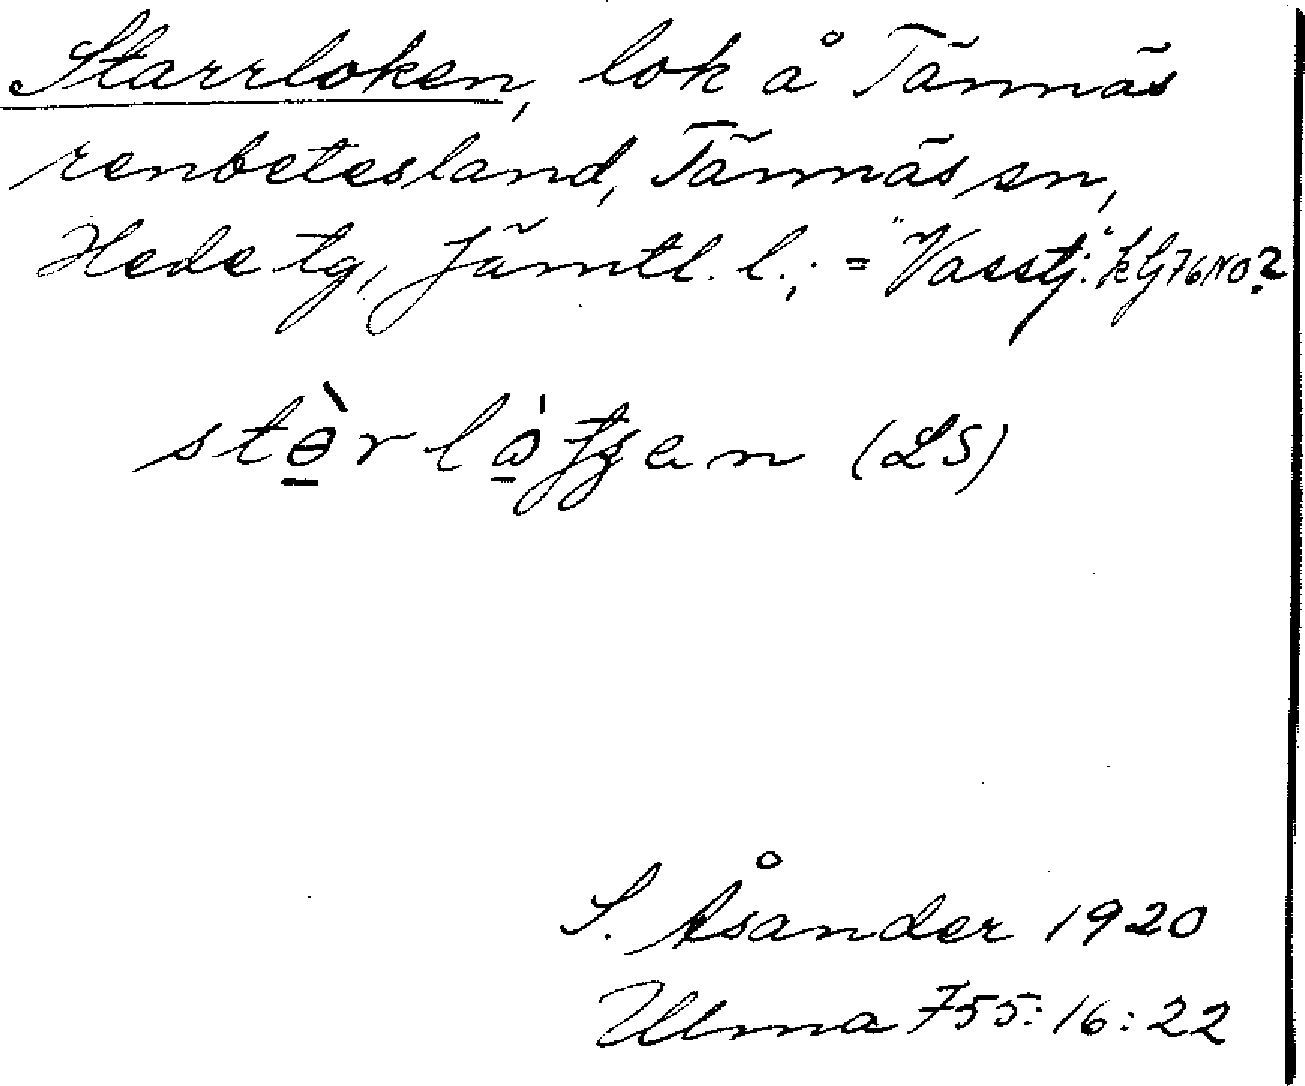 Starrloken, lok å Tännäs
renbetesland, Tännäs sn,
Hede tg, Jämtl. l.; = "Vasstj." kG76NO?
(LS)
S. Åsander 1920
Ulma 755:16:22